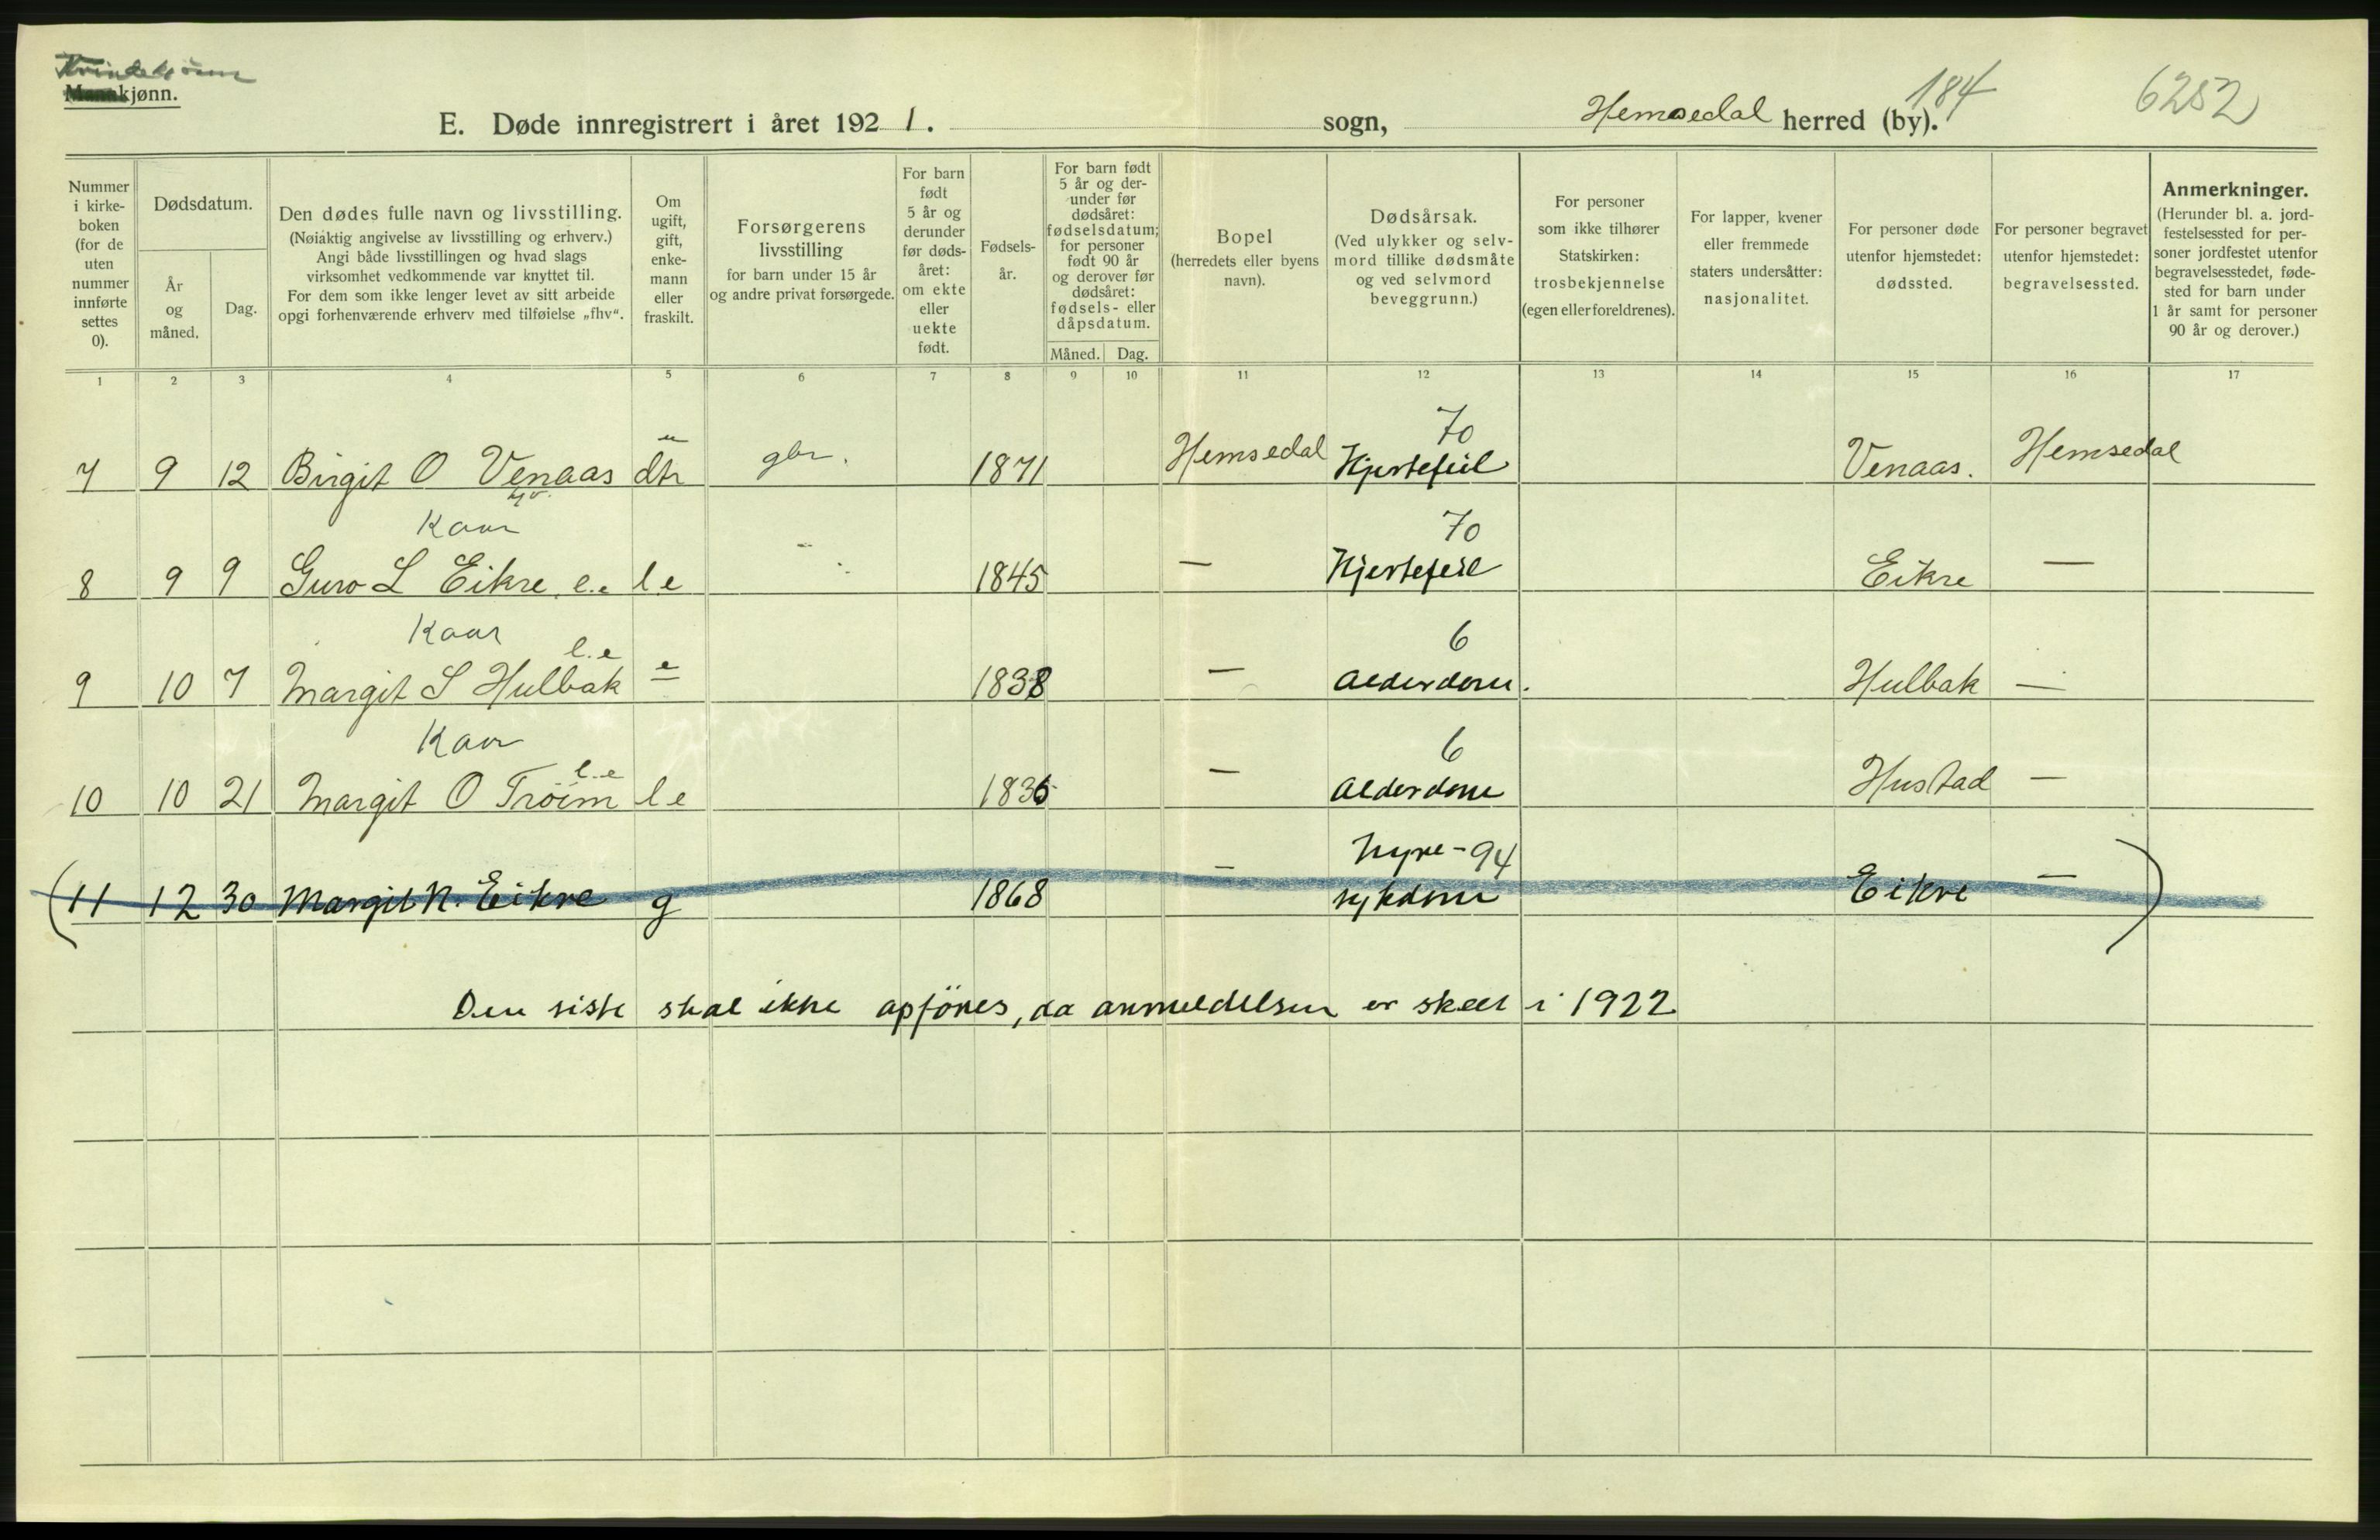 Kvindekjønn
Mannkjønn.
184
6252
E. Døde innregistrert i året 1921. sogn, Hemsedal herred (by).
Nummer i kirkeboken (for de uten nummer innførte settes 0).
Dødsdatum.
År og måned.
Dag.
Den dødes fulle navn og livsstilling.
(Nøiaktig angivelse av livsstilling og erhverv.)
Angi både livsstillingen og hvad slags
virksomhet vedkommende var knyttet til.
For dem som ikke lenger levet av sitt arbeide
opgi forhenværende erhverv med tilføielse „fhv“.
Om ugift, gift, enkemann eller fraskilt.
Forsørgerens livsstilling
for barn under 15 år
og andre privat forsørgede.
For barn født 5 år og derunder før dødsåret: om ekte eller uekte født.
Fødselsår.
For barn født 5 år og derunder før dødsåret: fødselsdatum; for personer født 90 år og derover før dødsåret: fødsels- eller dåpsdatum.
Måned. Dag.
Bopel
(herredets eller byens navn).
Dødsårsak.
(Ved ulykker og selvmord tillike dødsmåte og ved selvmord beveggrunn.)
For personer som ikke tilhører Statskirken: trosbekjennelse (egen eller foreldrenes).
For lapper, kvener eller fremmede staters undersåtter: nasjonalitet.
For personer døde utenfor hjemstedet: dødssted.
For personer begravet utenfor hjemstedet: begravelsessted.
Anmerkninger.
(Herunder bl. a. jordfestelsessted for personer jordfestet utenfor begravelsesstedet, fødested for barn under 1 år samt for personer 90 år og derover.)
1 2 3 4 5 6 7 8 9 10 11 12 13 14 15 16 17
u 70
7 9 12 Birgit O Venaas dtr gbr. 1871 Hemsedal Hjertefeil Venaas. Hemsedal
Kaar 70
8 9 9 Guro L Eikre e.e l e 1845 — Hjertefeil Eikre —
Kaar l.e 6
9 10 7 Margit S Hulbak e 1838 — Alderdom. Hulbak —
Kaar l.e 6
10 10 21 Margit O Trøim l e 1836 — Alderdom Hustad —
Nyre- 94
(11 12 30 Margit N. Eikre g 1868 — sykdom Eikre —)
Den siste skal ikke opføres, da anmeldelsen er skeet i 1922